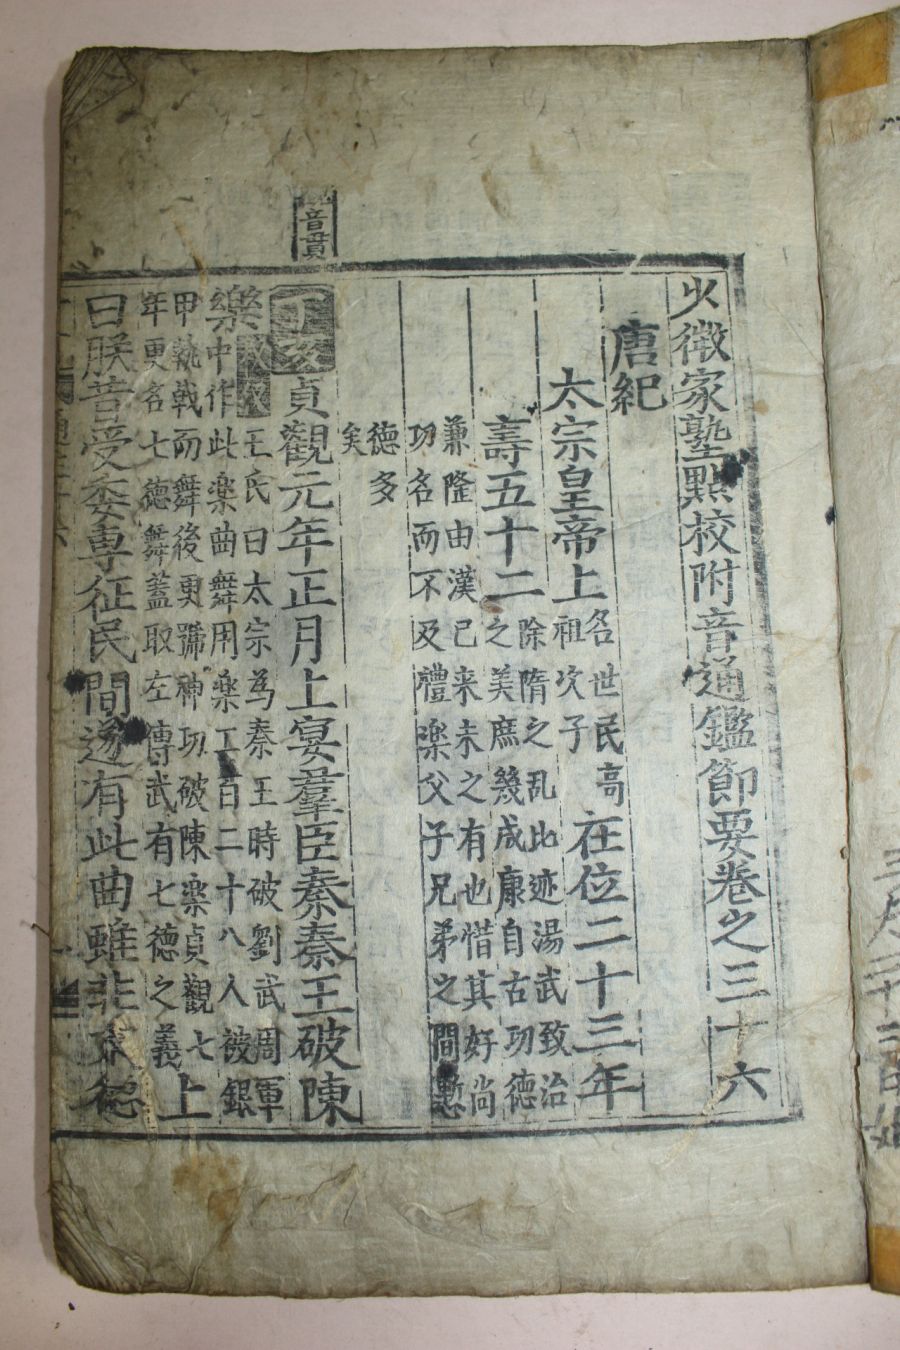 少微家塾點校附音通鑑節要卷之三十六
唐紀
太宗皇帝上 名世民高
祖次子 在位二十三年
壽五十二 除隋之乱比迹湯武致治
之美庶幾成康自古功德
兼隆由漢已来未之有也惜其好尚
功名而不及禮楽父子兄弟之間慙
德多
矣
音貫
丁亥 貞觀元年正月上宴羣臣奏秦王破陳
樂 王氏曰太宗為秦王時破劉武周軍
中作此楽曲舞用楽工百二十八人被銀
甲執戟而舞後更號神功破陳楽貞觀七
年更名七德舞蓋取左傳武有七德之義 上
曰朕昔受委專征民間遂有此曲雖非文德